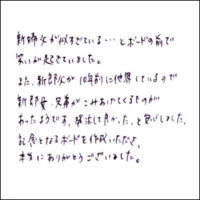 新婦父が似すぎている…とボードの前で
笑いが起きていました。
また、新郎父が10年前に他界しているので
新郎母、兄弟がこみあげてくるものが
あったようです。依頼して良かった。と感じました。
記念となるボードを作成いただき、
本当にありがとうございました。